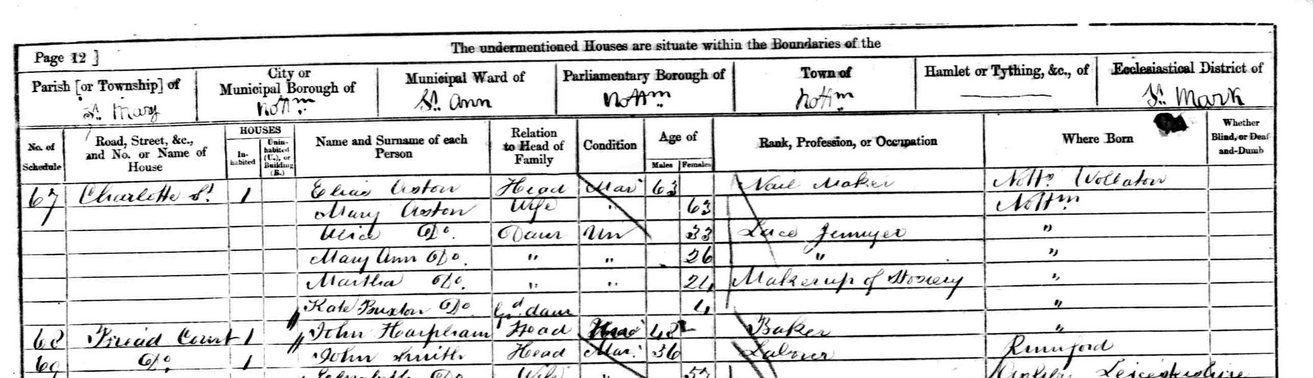 Page 12]
The undermentioned Houses are situate within the Boundaries of the
Parish [or Township] of City or Municipal Borough of Municipal Ward of Parliamentary Borough of Town of Hamlet or Tything, &c., of Ecclesiastical District of
St. Mary Nottm St. Ann Nottm Nottm St. Mark
No. of Schedule Road, Street, &c., and No. or Name of House HOUSES In-habited Unin-habited (U.), or Building (B.) Name and Surname of each Person Relation to Head of Family Condition Age of Males Females Rank, Profession, or Occupation Where Born Whether Blind, or Deaf-and-Dumb
67 Charlotte St. 1 Elias Aston Head Mar 63 Nail Maker Notts Wollaton
Mary Aston Wife " 63 Nottm
Alice Do. Daur Un 33 Lace "
Mary Ann Do. " " 26 " "
Martha Do. " " Makerup of Hosiery "
Kate Buxton Do. Gd. daur "
68 Court 1 John Harpham Head Baker "
69 Do. 1 John Smith Head Mar. 36 Labour
Wife Leicestershire